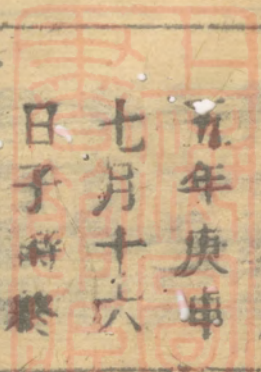 五年庚申
七月十六
日子時終